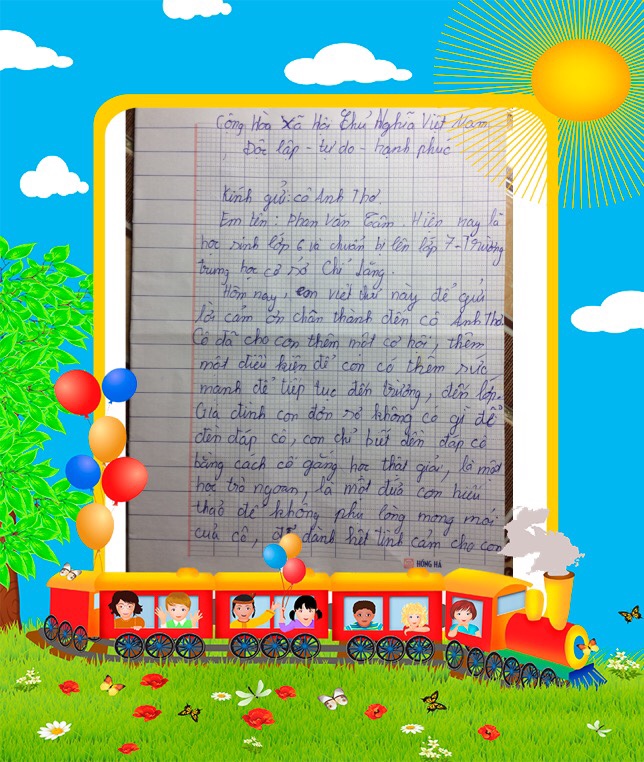 Cộng Hòa Xã Hội Chủ Nghĩa Việt Nam
Độc lập - tự do - hạnh phúc
Kính gửi: cô Anh Thơ.
Em tên: Phan Văn Tâm. Hiện nay là
học sinh lớp 6 và chuẩn bị lên lớp 7 - Trường
trung học cơ sở Chi Lăng.
Hôm nay, con viết thư này để gửi
lời cảm ơn chân thành đến cô Anh Thơ.
Cô đã cho con thêm một cơ hội, thêm
một điều kiện để con có thêm sức
mạnh để tiếp tục đến trường, đến lớp.
Gia đình con đơn sơ không có gì để
đền đáp cô, con chỉ biết đền đáp cô
bằng cách cố gắng học thật giỏi, là một
học trò ngoan, là một đứa con hiếu
thảo để không phụ lòng mong mỏi
của cô, để dành hết tình cảm cho con
HỒNG HÀ